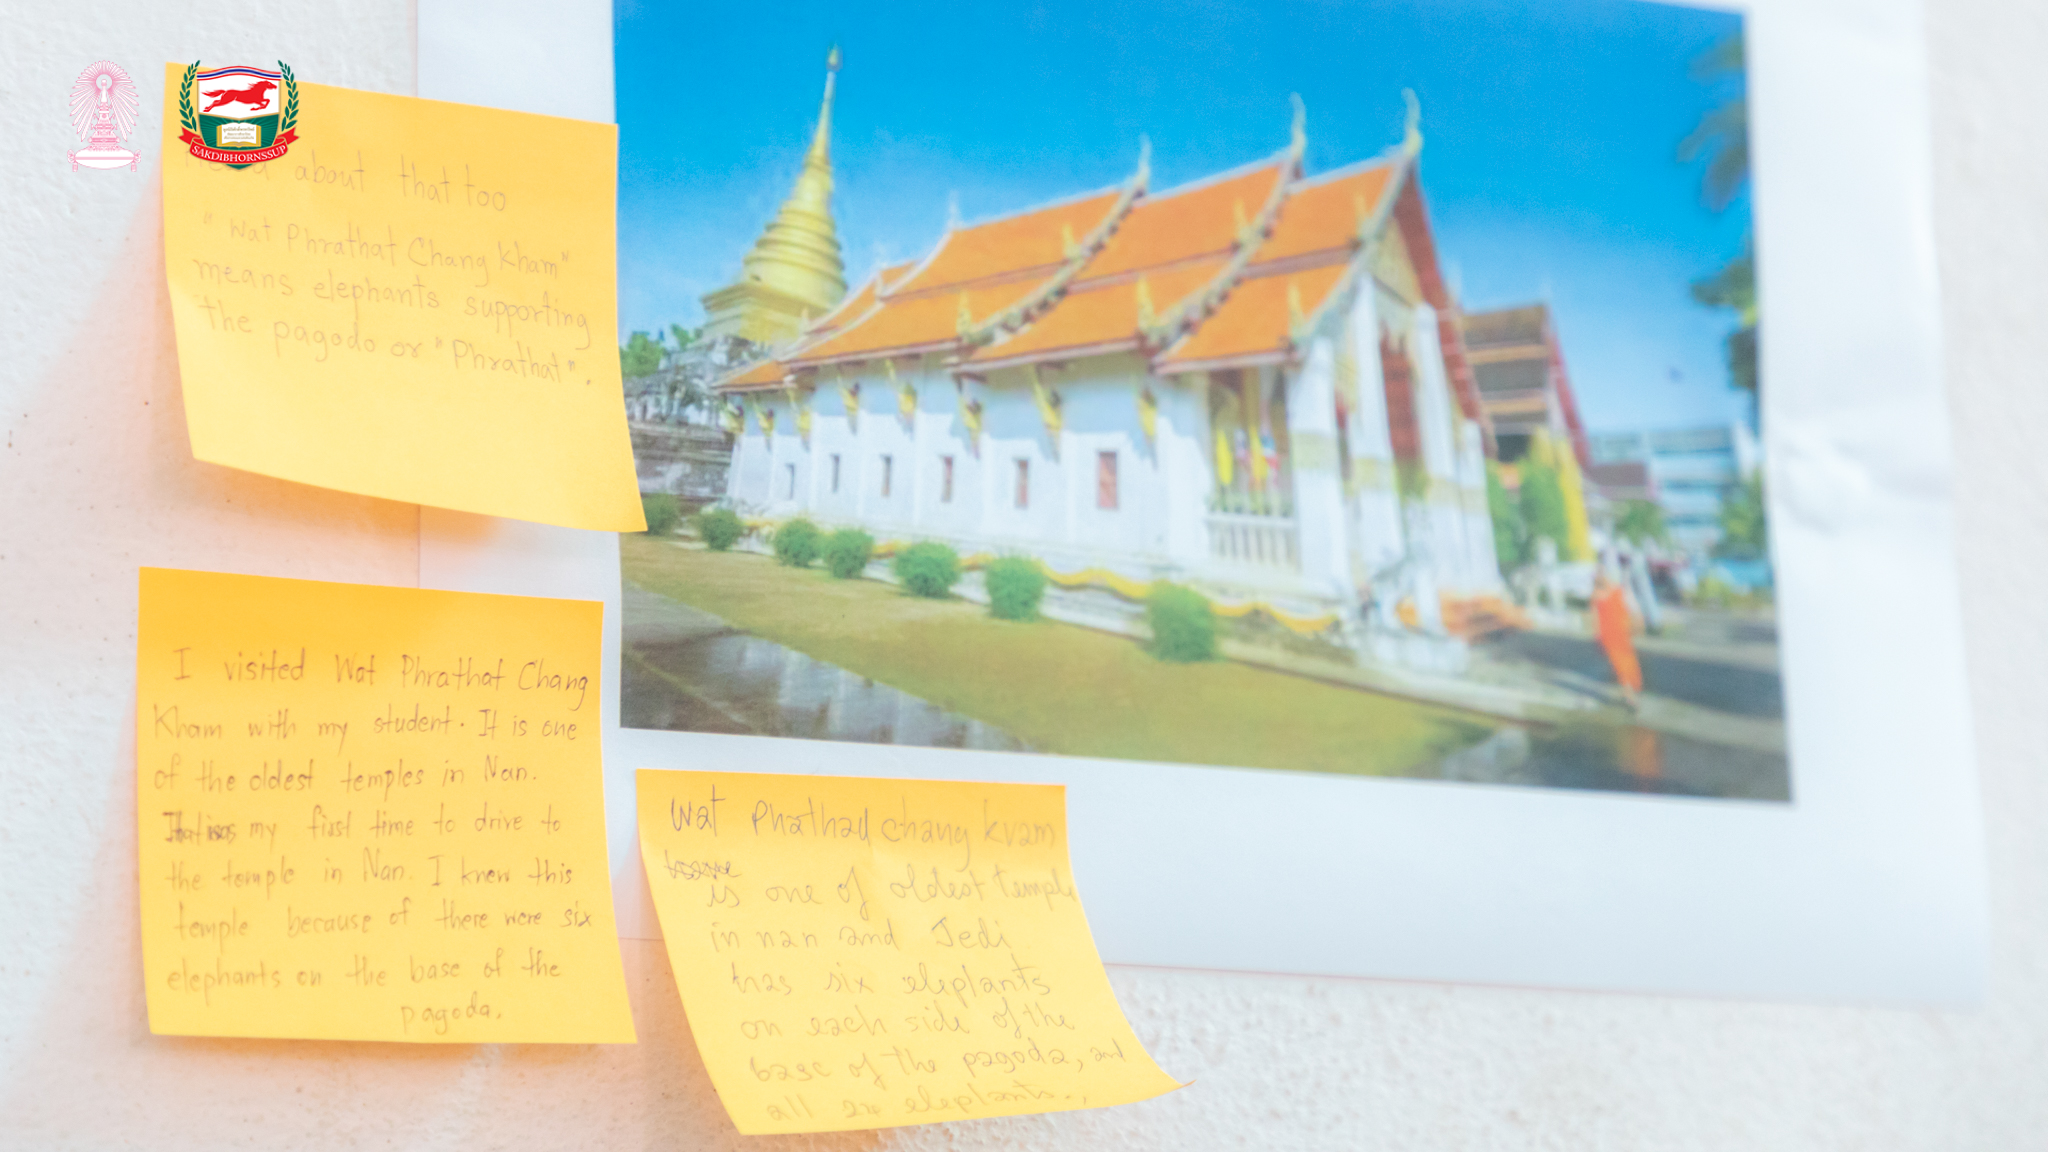 SAKDIBHORNSSUP
about that too
"Wat Phrathat Chang Kham"
means elephants supporting
the pagodo or "Phrathat".
I visited Wat Phrathat Chang
Kham with my student. It is one
of the oldest temples in Nan.
my first time to drive to
the temple in Nan. I knew this
temple because of there were six
elephants on the base of the
pagoda.
Wat Phathad chang kvam
is one of oldest temple
in nan and Jedi
has six eleplants
on each side of the
base of the pagoda, and
all 24 eleplants.,